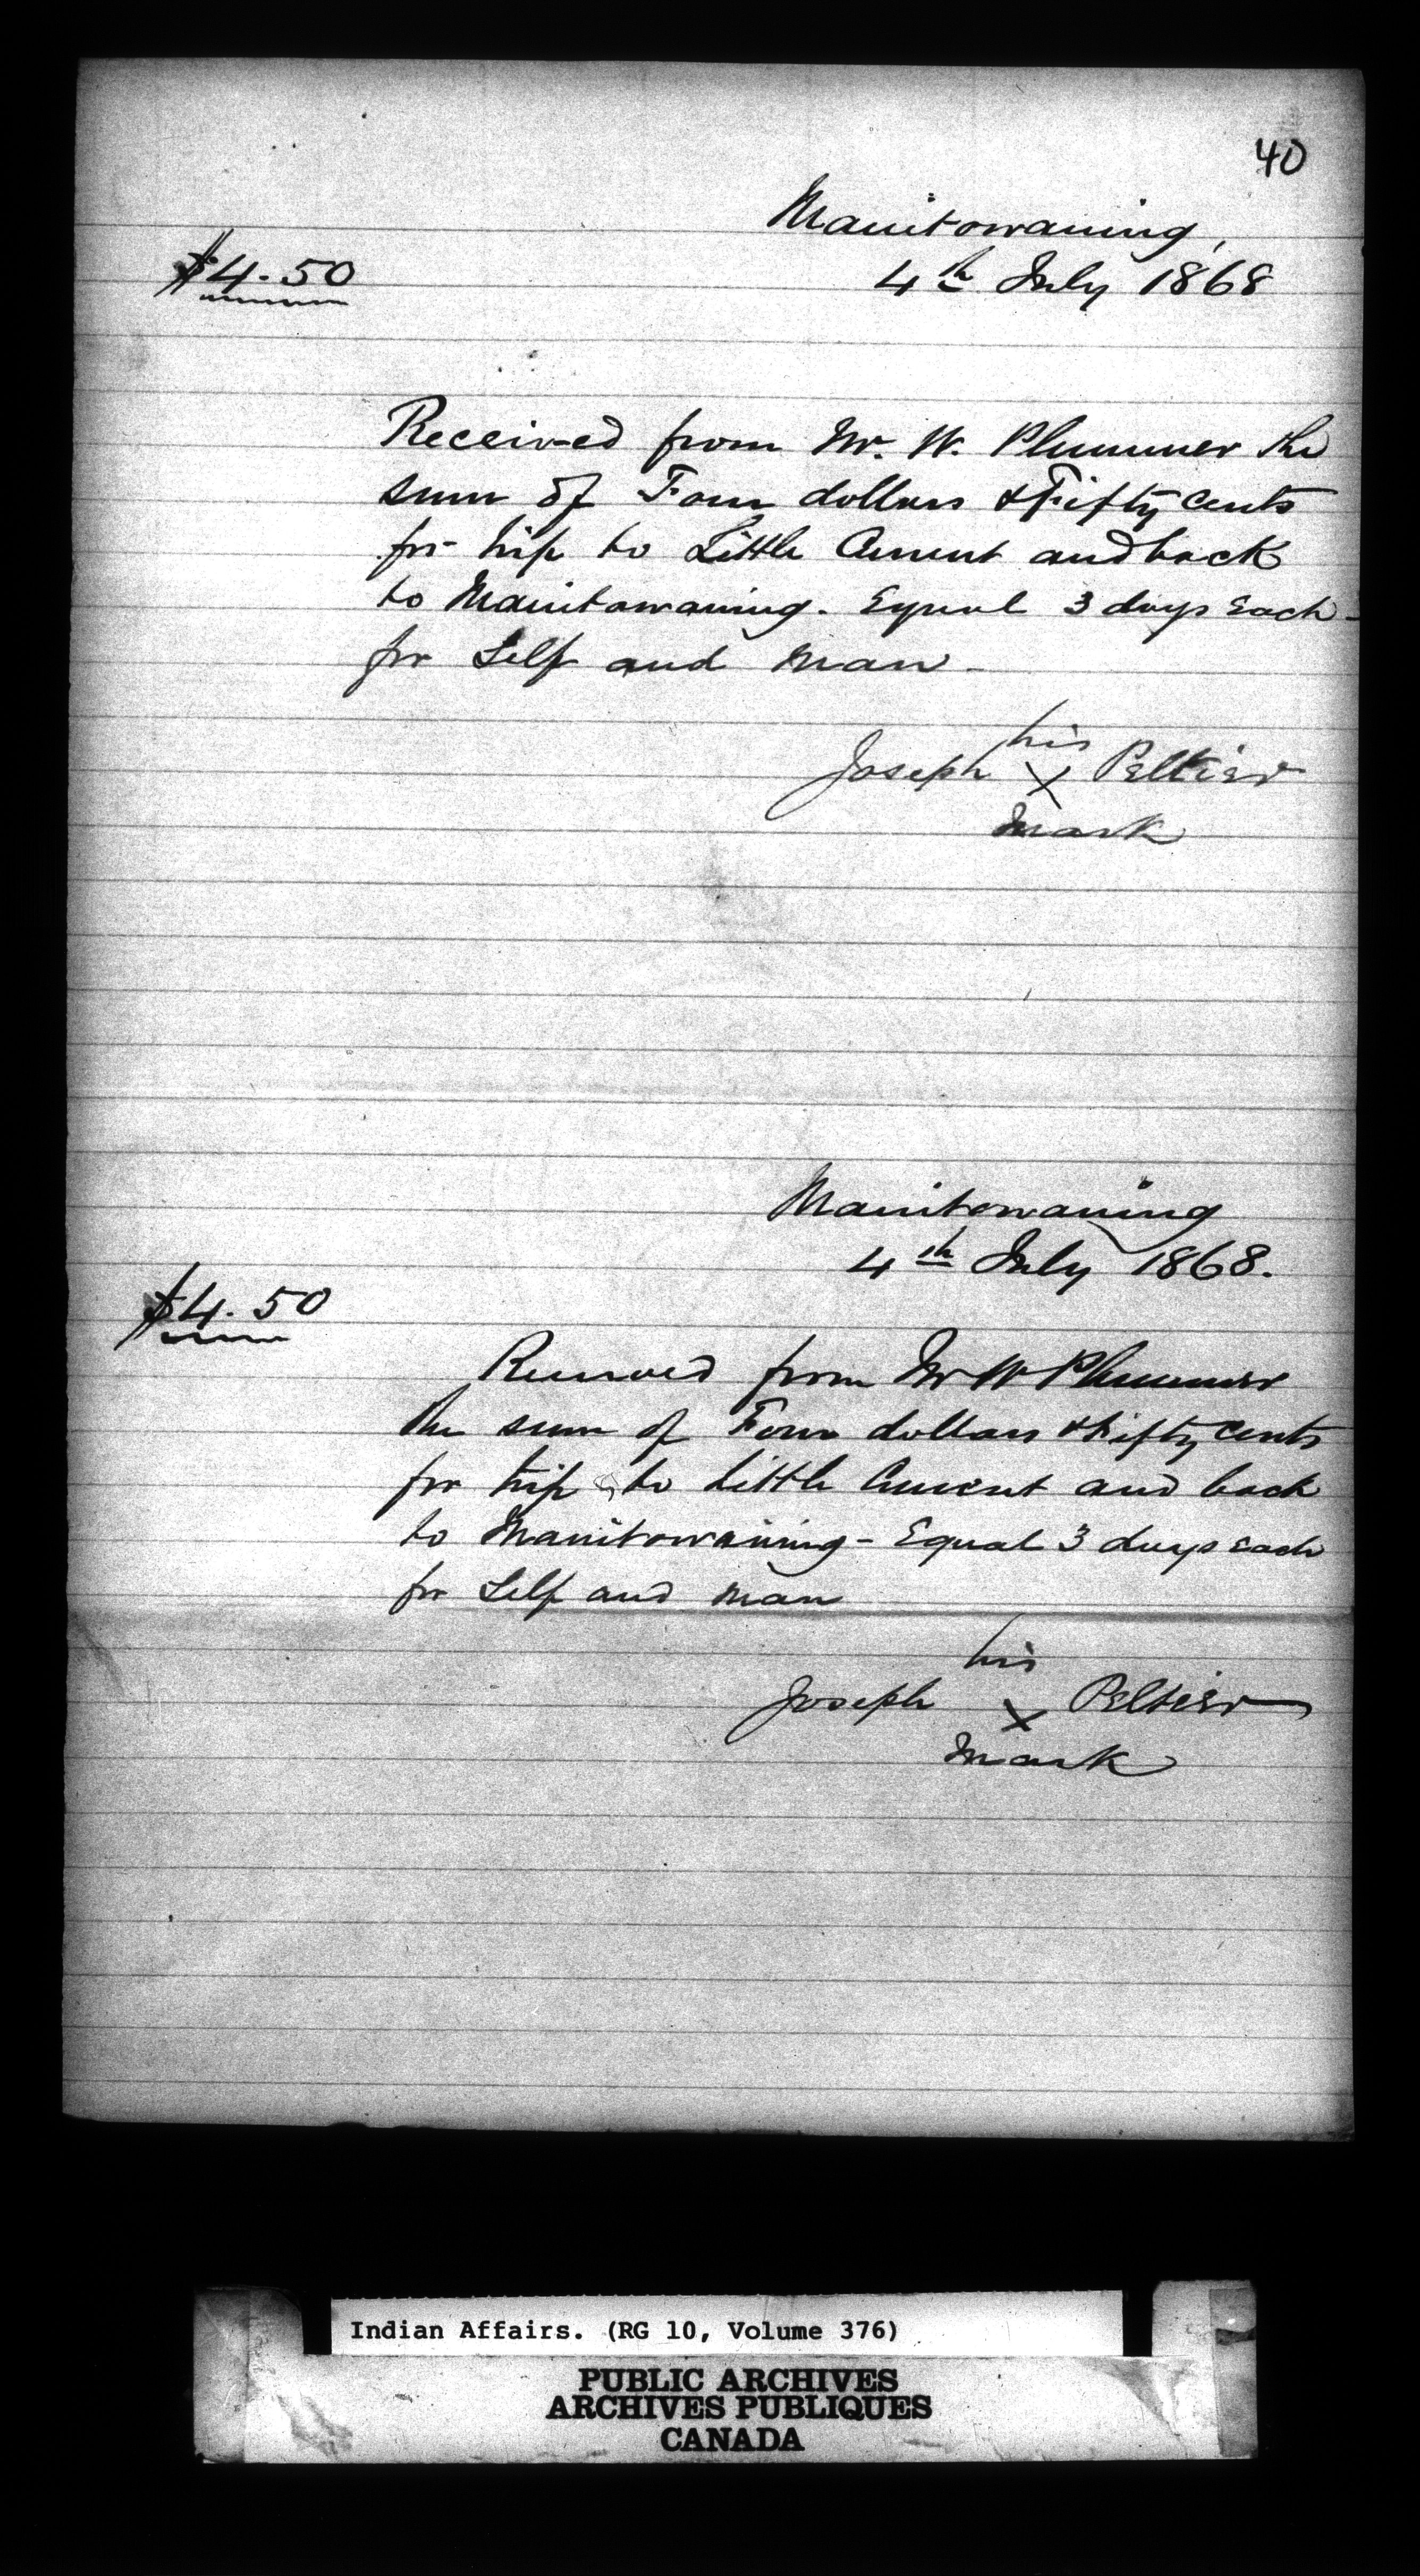 40
Manitowaning,
$4.50
4th July 1868
Received from Mr. W. Plummer the
sum of Four dollars & Fifty cents
for trip to Little Current and back
to Manitowaning. Equal 3 days each
for Self and man
his
Joseph X Peltier
mark
Manitowaning
4th July 1868.
$4.50
Received from Mr W Plummer
the sum of Four dollars & Fifty cents
for trip to Little Current and back
to Manitowaning - Equal 3 days each
for Self and man
his
Joseph X Peltier
mark
Indian Affairs. (RG 10, Volume 376)
PUBLIC ARCHIVES
ARCHIVES PUBLIQUES
CANADA